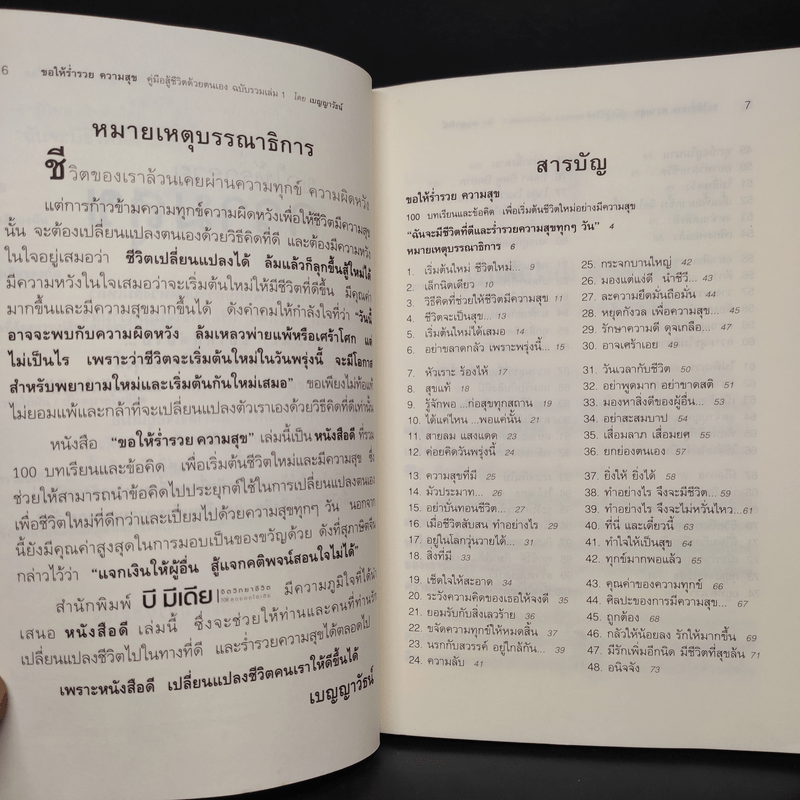 6
ขอให้ร่ำรวย ความสุข คู่มือสู้ชีวิตด้วยตนเอง ฉบับรวมเล่ม 1 โดย เบญญาวัธน์
หมายเหตุบรรณาธิการ
ชีวิตของเราล้วนเคยผ่านความทุกข์ ความผิดหวัง
แต่การก้าวข้ามความทุกข์ความผิดหวังเพื่อให้ชีวิตมีความสุข
นั้น จะต้องเปลี่ยนแปลงตนเองด้วยวิธีคิดที่ดี และต้องมีความหวัง
ในใจอยู่เสมอว่า ชีวิตเปลี่ยนแปลงได้ ล้มแล้วก็ลุกขึ้นสู้ใหม่ได้
มีความหวังในใจเสมอว่าจะเริ่มต้นใหม่ให้มีชีวิตที่ดีขึ้น มีคุณค่า
มากขึ้นและมีความสุขมากขึ้นได้ ดังคำคมให้กำลังใจที่ว่า "วันนี้
อาจจะพบกับความผิดหวัง ล้มเหลวพ่ายแพ้หรือเศร้าโศก แต่
ไม่เป็นไร เพราะว่าชีวิตจะเริ่มต้นใหม่ในวันพรุ่งนี้ จะมีโอกาส
สำหรับพยายามใหม่และเริ่มต้นกันใหม่เสมอ" ขอเพียงไม่ท้อแท้
ไม่ยอมแพ้และกล้าที่จะเปลี่ยนแปลงตัวเราเองด้วยวิธีคิดที่ดีเท่านั้น
หนังสือ "ขอให้ร่ำรวย ความสุข" เล่มนี้เป็น หนังสือดี ที่รวม
100 บทเรียนและข้อคิด เพื่อเริ่มต้นชีวิตใหม่และมีความสุข ซึ่ง
ช่วยให้สามารถนำข้อคิดไปประยุกต์ใช้ในการเปลี่ยนแปลงตนเอง
เพื่อชีวิตใหม่ที่ดีกว่าและเปี่ยมไปด้วยความสุขทุกๆ วัน นอกจาก
นี้ยังมีคุณค่าสูงสุดในการมอบเป็นของขวัญด้วย ดังที่สุภาษิตจีน
กล่าวไว้ว่า "แจกเงินให้ผู้อื่น สู้แจกคติพจน์สอนใจไม่ได้"
สำนักพิมพ์ บี มีเดีย มีความภูมิใจที่ได้
เสนอ หนังสือดี เล่มนี้ ซึ่งจะช่วยให้ท่านและคนที่ท่านรัก
เปลี่ยนแปลงชีวิตไปในทางที่ดี และร่ำรวยความสุขได้ตลอดไป
เพราะหนังสือดี เปลี่ยนแปลงชีวิตคนเราให้ดีขึ้นได้
เบญญาวัธน์
7
สารบัญ
ขอให้ร่ำรวย ความสุข
100 บทเรียนและข้อคิด เพื่อเริ่มต้นชีวิตใหม่อย่างมีความสุข
"ฉันจะมีชีวิตที่ดีและร่ำรวยความสุขทุกๆ วัน" 4
หมายเหตุบรรณาธิการ 6
1. เริ่มต้นใหม่ ชีวิตใหม่... 9
2. เล็กนิดเดียว 10
3. วิธีคิดที่ช่วยให้ชีวิตมีความสุข 11
4. ชีวิตจะเป็นสุข... 13
5. เริ่มต้นใหม่ได้เสมอ 14
6. อย่าขลาดกลัว เพราะพรุ่งนี้... 15
7. หัวเราะ ร้องไห้ 17
8. สุขแท้ 18
9. รู้จักพอ ...ก่อสุขทุกสถาน 19
10. ได้แค่ไหน ...พอแค่นั้น 21
11. สายลม แสงแดด 23
12. ค่อยคิดวันพรุ่งนี้ 24
13. ความสุขที่มี 25
14. มัวประมาท... 26
15. อย่าบั่นทอนชีวิต... 27
16. เมื่อชีวิตสับสน ทำอย่างไร 29
17. อยู่ในโลกวุ่นวายได้... 31
18. สิ่งที่มี 33
19. เช็ดใจให้สะอาด 34
20. ระวังความคิดของเธอให้จงดี 35
21. ยอมรับกับสิ่งเลวร้าย 36
22. ขจัดความทุกข์ให้หมดสิ้น 37
23. นรกกับสวรรค์ อยู่ใกล้กัน... 39
24. ความลับ 41
25. กระจกบานใหญ่ 42
26. มองแต่แง่ดี นำชีวี... 43
27. ละความยึดมั่นถือมั่น 44
28. หยุดกังวล เพื่อความสุข... 45
29. รักษาความดี ดุจเกลือ... 47
30. อาจเศร้าเอย 49
31. วันเวลากับชีวิต 50
32. อย่าพูดมาก อย่าขาดสติ 51
33. มองหาสิ่งดีของผู้อื่น... 53
34. อย่าสะสมบาป 54
35. เสื่อมลาภ เสื่อมยศ 55
36. ยกย่องตนเอง 57
37. ยิ่งให้ ยิ่งได้ 58
38. ทำอย่างไร จึงจะมีชีวิต... 59
39. ทำอย่างไร จึงจะไม่หวั่นไหว... 61
40. ที่นี่ และเดี๋ยวนี้ 63
41. ทำใจให้เป็นสุข 64
42. ทุกข์มากพอแล้ว 65
43. คุณค่าของความทุกข์ 66
44. ศิลปะของการมีความสุข... 67
45. ถูกต้อง 68
46. กลัวให้น้อยลง รักให้มากขึ้น 69
47. มีรักเพิ่มอีกนิด มีชีวิตที่สุขล้น 71
48. อนิจจัง 73